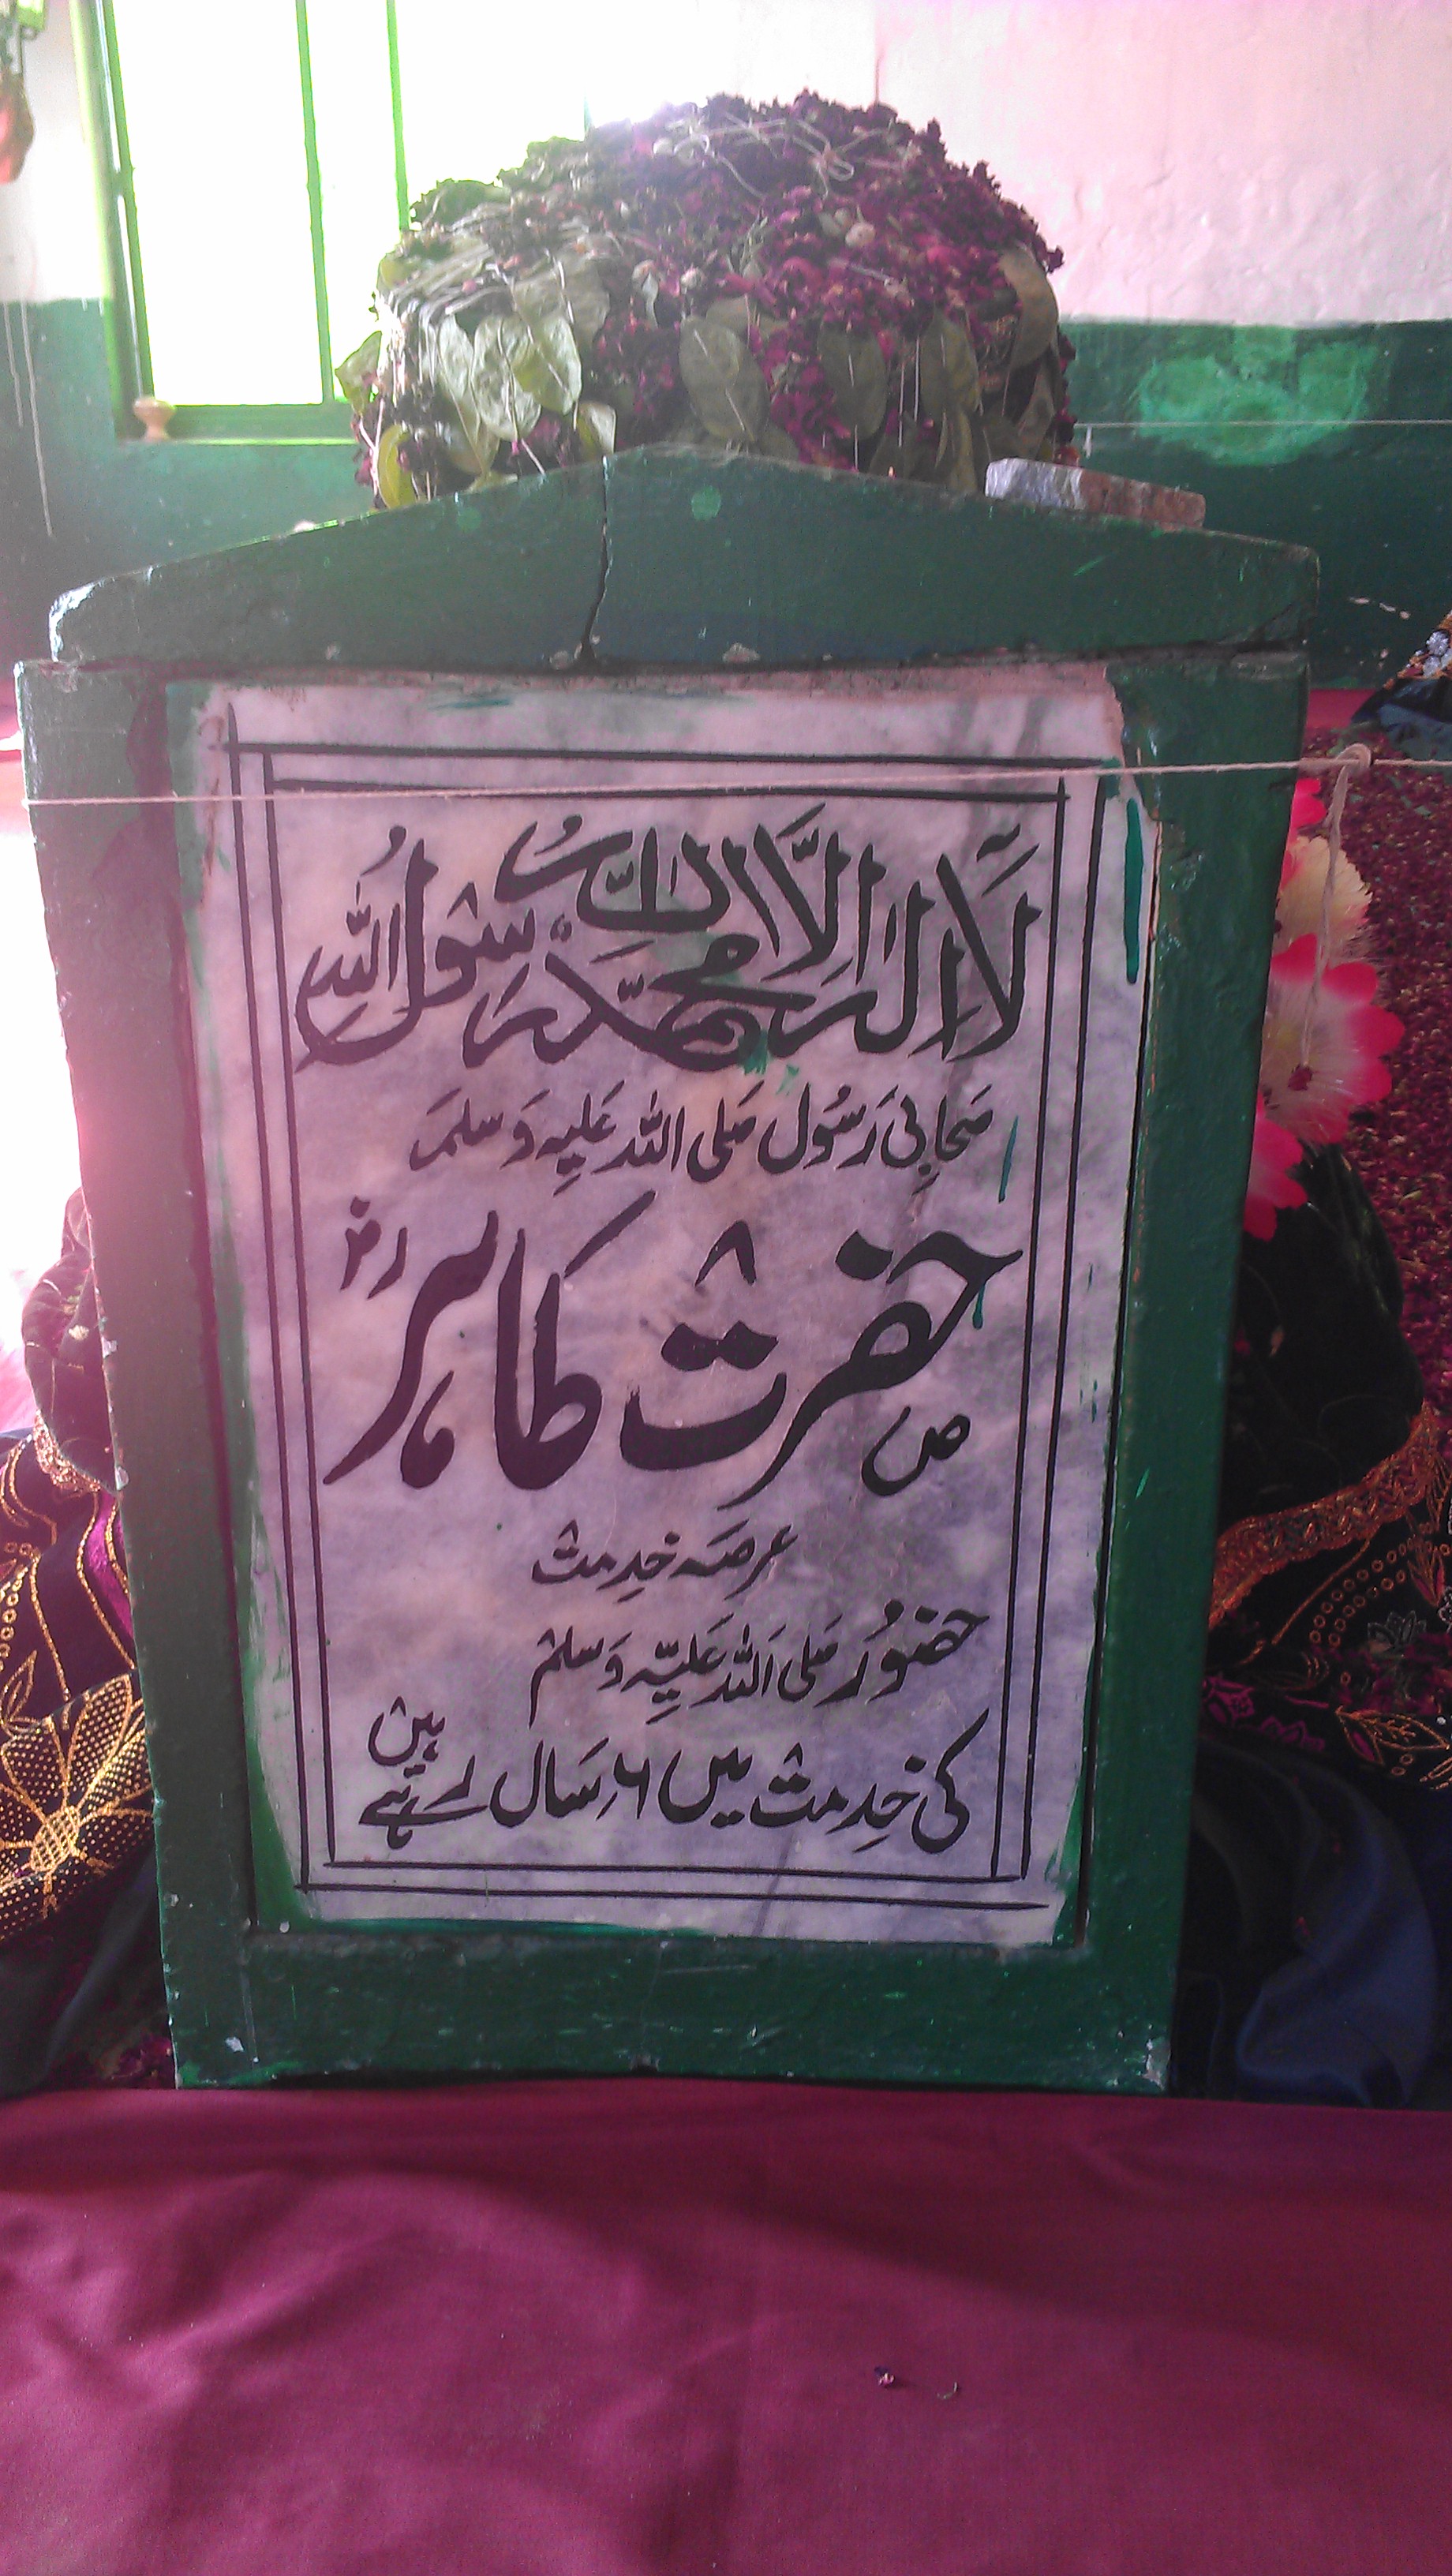 لا اله الا الله محمد رسول الله
صحابی رسول صلی اللہ علیہ وسلم
حضرت طاہر رض
عرصہ خدمت
حضور صلی اللہ علیہ وسلم
کی خدمت میں ٦ سال رہے ہیں